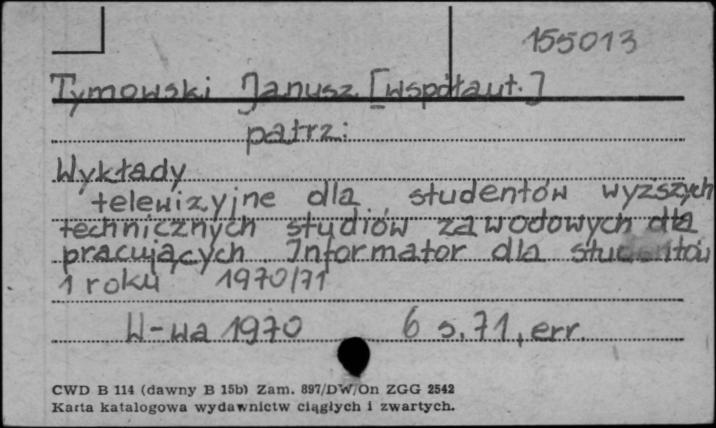 155013
Tymowski Janusz [współaut.]
patrz:
Wykłady
telewizyjne dla studentów wyższych
technicznych studiów zawodowych dla
pracujących. Informator dla studentów
1 roku 1970/71
W-wa 1970 6 s. 71, err.
CWD B 114 (dawny B 15b) Zam. 897/DW/On ZGG 2542
Karta katalogowa wydawnictw ciągłych i zwartych.